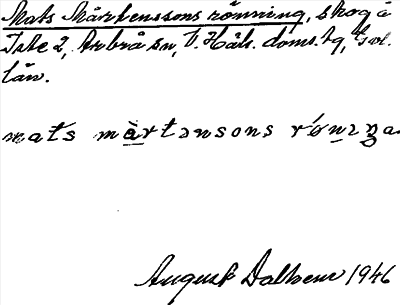 Mats Mårtenssons rönning, skog å
Iste 2, Arbrå sn, V. Häls. doms.tg, Gvl.
län.
mats màrtənsons rǿnıŋa.
August Dalhem 1946